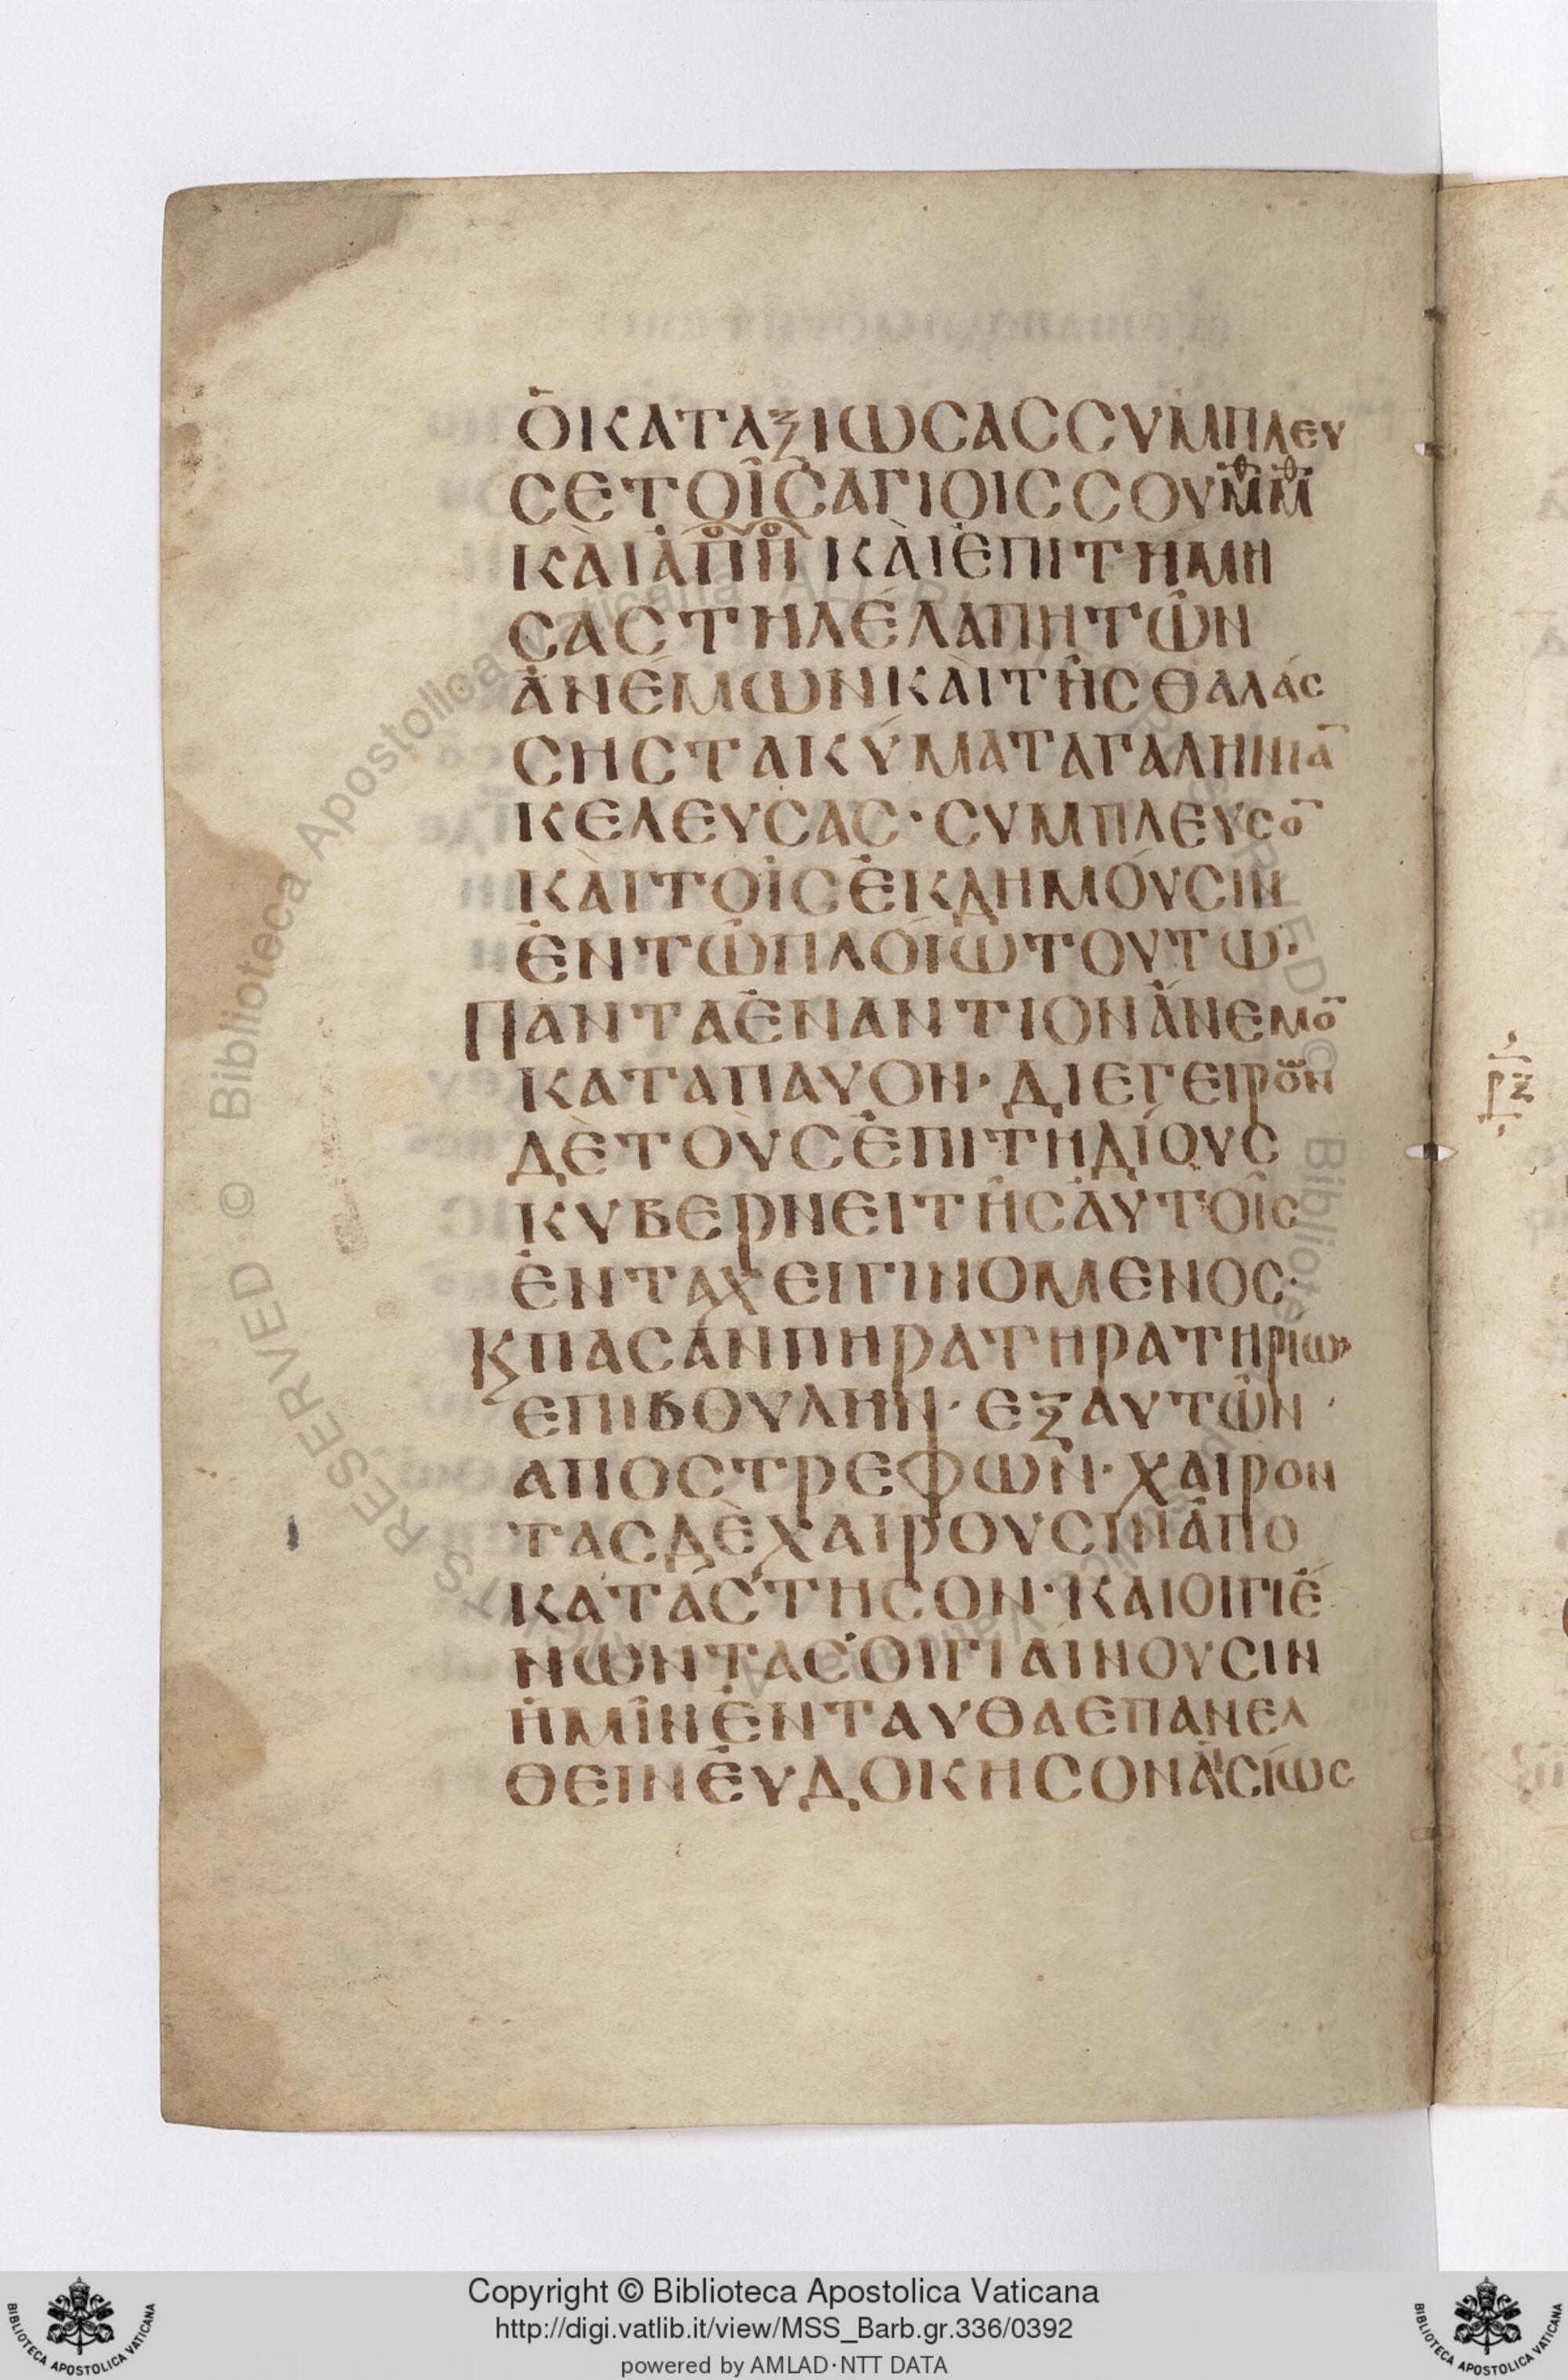 ὉΚΑΤΑΞΙΩCΑCCΥΜΠΛΕΥ
CΕΤΟῖCΑΓΙΟΙCCΟΥΜ̅Μ̅
ΚΑῚἈΠ̅Π̅ ΚΑῚἘΠΙΤΗΜΗ
CΑCΤΗΛΈΛΑΠΗΤῶΝ
ἈΝΈΜΩΝΚΑῚΤῆCΘΑΛΆC
CΗCΤΑΚΎΜΑΤΑΓΑΛΗΝΙΑ̅
ΚΕΛΕΥCΑC·CΥΜΠΛΕΥCΟ̅
ΚΑῚΤΟῖCἘΚΔΗΜΟΎCΙΝ
ἘΝΤῶΠΛΟΊΩΤΟΥΤΩ·
ΠΑΝΤΑἘΝΑΝΤΙΟΝἌΝΕΜΟ̅
ΚΑΤΑΠΑΥΟΗ·ΔΙΕΓΕΙΡΟΝ
ΔῈΤΟῪCἘΠΙΤΗΔΊΟΥC
ΚΥΒΕΡΝΕΙΤῆCἈΥΤΟῖC
ἘΝΤΑΧΕΙΓΙΝΟΜΕΝΟC·
ΚϚΠΑCΑΝΠΗΡΑΤΗΡΑΤΗΡΙΩΝ
ΕΠΙΒΟΥΛΗΝ·ΕΞΑΥΤῶΝ
ΑΠΟCΤΡΕΦΩΝ·ΧΑΙΡΟΝ
ΤΑCΔῈΧΑΙΡΟΥCΙΝἈΠΟ
ΚΑΤΆCΤΗCΟΝ·ΚΑΙΟΙΓΙΈ
ΝΩΝΤΑCὉΙΓΙΑΊΝΟΥCΙΝ
ἩΜῖΝἘΝΤΑΥΘΑΕΠΑΝΕΛ
ΘΕΙΝἘΥΔΟΚΗCΟΝἌCΊΩC
Copyright © Biblioteca Apostolica Vaticana
http://digi.vatlib.it/view/MSS_Barb.gr.336/0392
powered by AMLAD·NTT DATA
BIBLIOTECA APOSTOLICA VATICANA
BIBLIOTECA APOSTOLICA VATICANA